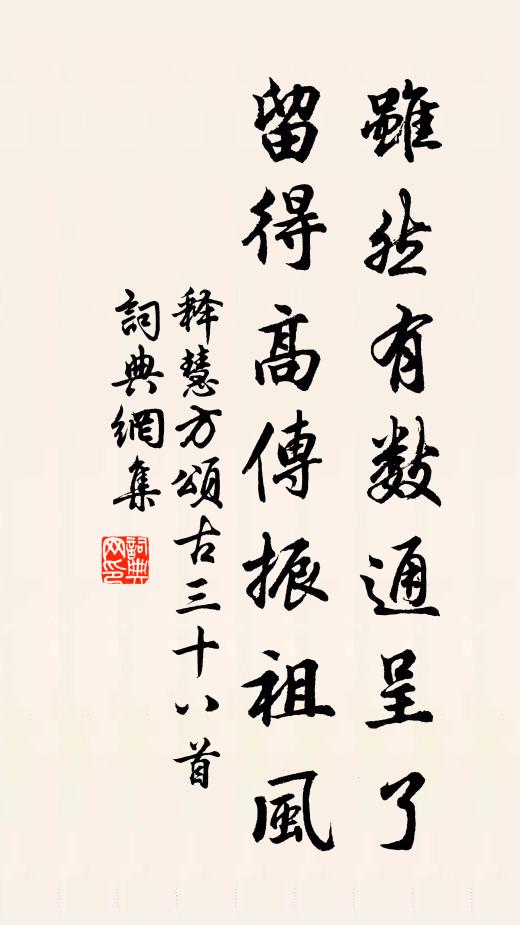 雖然有數通呈了
留得高傳振祖風
释慧方頌古三十八首
詞典網集
詞典网印